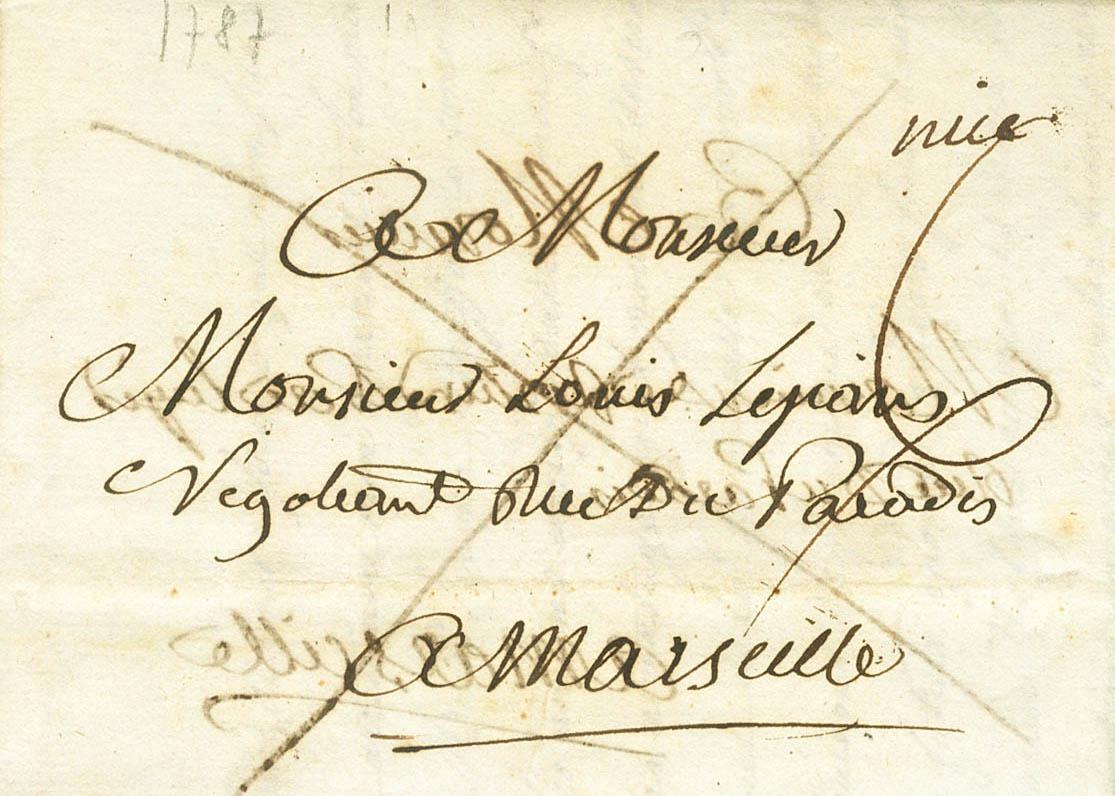 1787
nice
A Monsieur
Monsieur Louis
Negotiant Rue Du Paradis
A Marseille